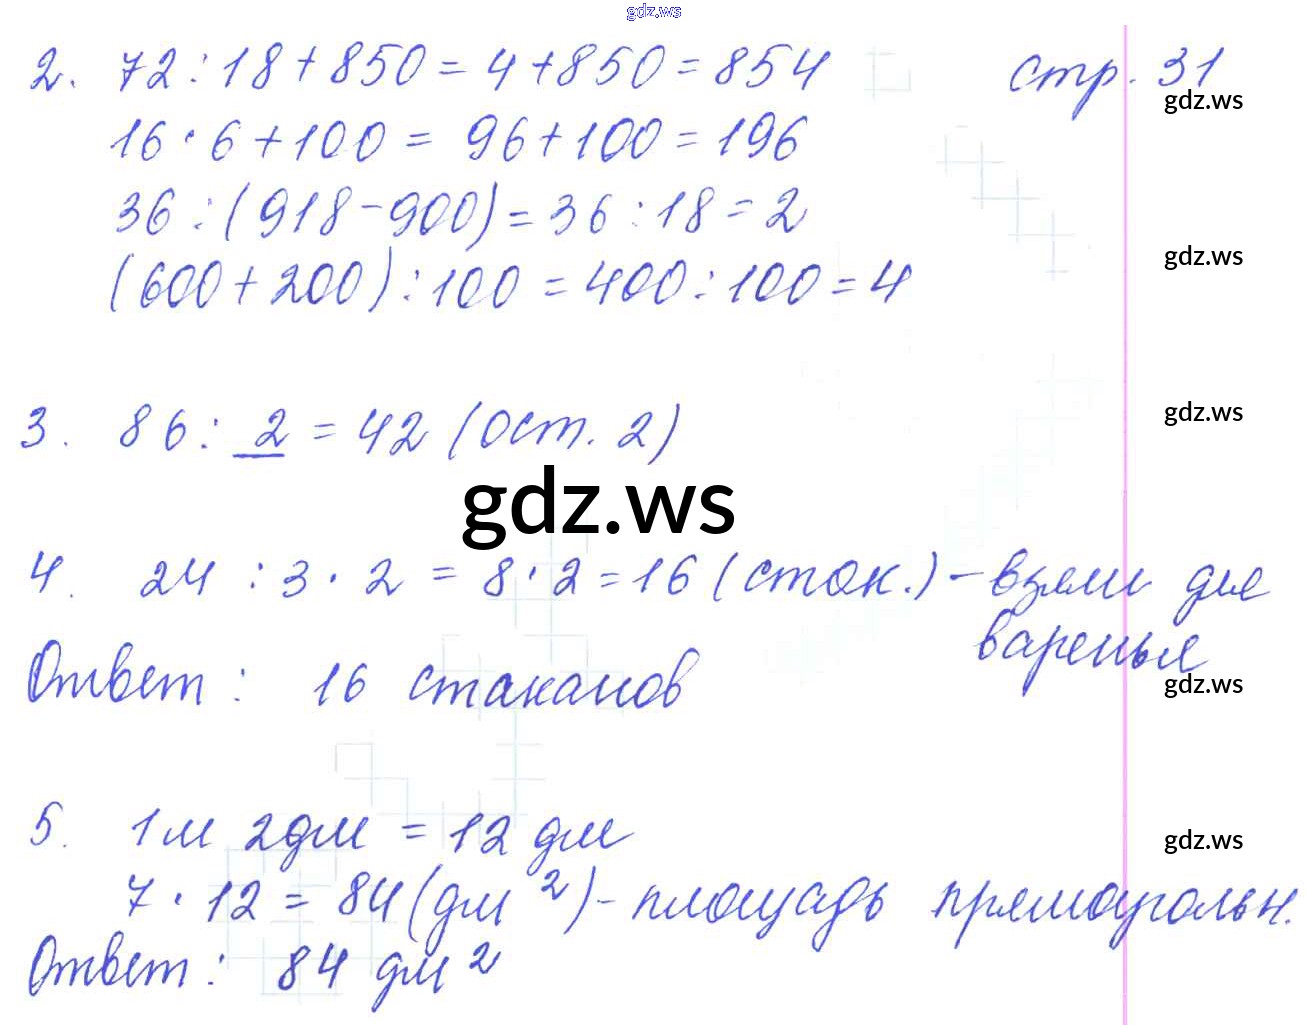 gdz.ws
2. 72 : 18 + 850 = 4 + 850 = 854 стр. 31
gdz.ws
16 · 6 + 100 = 96 + 100 = 196
36 : (918 - 900) = 36 : 18 = 2
gdz.ws
(600 + 200) : 100 = 400 : 100 = 4
gdz.ws
3. 86 : 2 = 42 (ост. 2)
gdz.ws
4. 24 : 3 · 2 = 8 · 2 = 16 (стак.) - взяли для
варенья
gdz.ws
Ответ : 16 стаканов
5. 1 м 2 дм = 12 дм
gdz.ws
7 · 12 = 84 (дм ²) - площадь прямоугольн.
Ответ : 84 дм ²